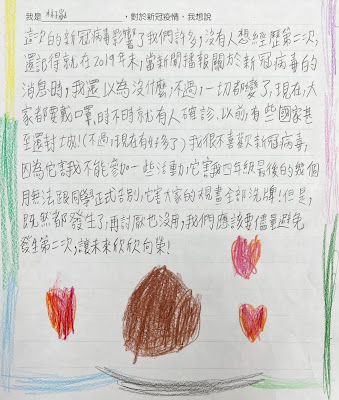 我是 ，對於新冠疫情，我想說
這次的新冠病毒影響了我們許多，沒有人想經歷第二次，
還記得就在2019年末，當新聞播報關於新冠病毒的
消息時，我還以為沒什麼，不過，一切都變了，現在，大
家都要戴口罩，時不時就有人確診，以前，有些國家甚
至還封城！（不過現在有好多了）我很不喜歡新冠病毒，
因為它害我不能參加一些活動，它害我四年級最後的幾個
月無法跟同學正式告別，它害大家的規畫全部洗牌！但是，
既然都發生了，再討厭也沒用，我們應該要儘量避免
發生第二次，讓未來欣欣向榮！